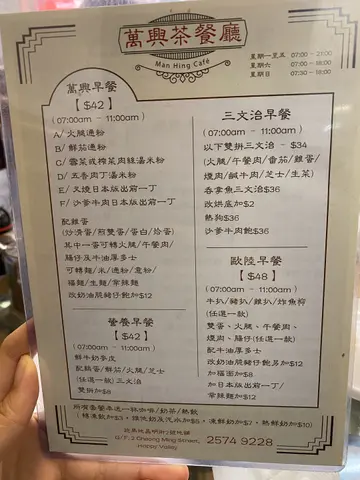 萬興茶餐廳
Man Hing Café
星期一至五 07:00 - 21:00
星期六 07:00 - 18:00
星期日 07:30 - 18:00
萬興早餐
【 $42 】
(07:00am - 11:00am)
A/ 火腿通粉
B/ 鮮茄通粉
C/ 雪菜或榨菜肉絲湯米粉
D/ 五香肉丁湯米粉
E/ 叉燒日本版出前一丁
F/ 沙爹牛肉日本版出前一丁
配雞蛋
(炒滑蛋/煎雙蛋/蛋白/烚蛋)
其中一蛋可轉火腿/午餐肉/
腸仔及牛油厚多士
可轉麵/米/通粉/意粉/
福麵/生麵/拿辣麵
改奶油脆豬仔飽加$12
營養早餐
【 $42 】
(07:00am - 11:00am)
鮮牛奶麥皮
配鷄蛋/鮮茄/火腿/芝士
(任選一款) 三文治
雙拼加$8
三文治早餐
(07:00am - 11:00am)
以下雙拼三文治 - $34
(火腿/午餐肉/番茄/雞蛋/
燻肉/鹹牛肉/芝士/生菜)
吞拿魚三文治$36
改烘底加$2
熱狗$36
沙爹牛肉飽$36
歐陸早餐
【 $48 】
(07:00am - 11:00am)
牛扒/豬扒/雞扒/炸魚柳
(任選一款)
雙蛋、火腿、午餐肉、
燻肉、腸仔(任選一款)
配牛油厚多士
改奶油脆豬仔飽另加$12
加福面加$8
加日本版出前一丁/
拿辣麵加$12
所有套餐奉送一杯咖啡/奶茶/熱飲
(轉凍飲加$3，雜他奶及汽水加$5，凍鮮奶加$7，熱鮮奶加$10)
跑馬地昌明街2號地舖
G/F, 2 Cheong Ming Street,
Happy Valley
2574 9228